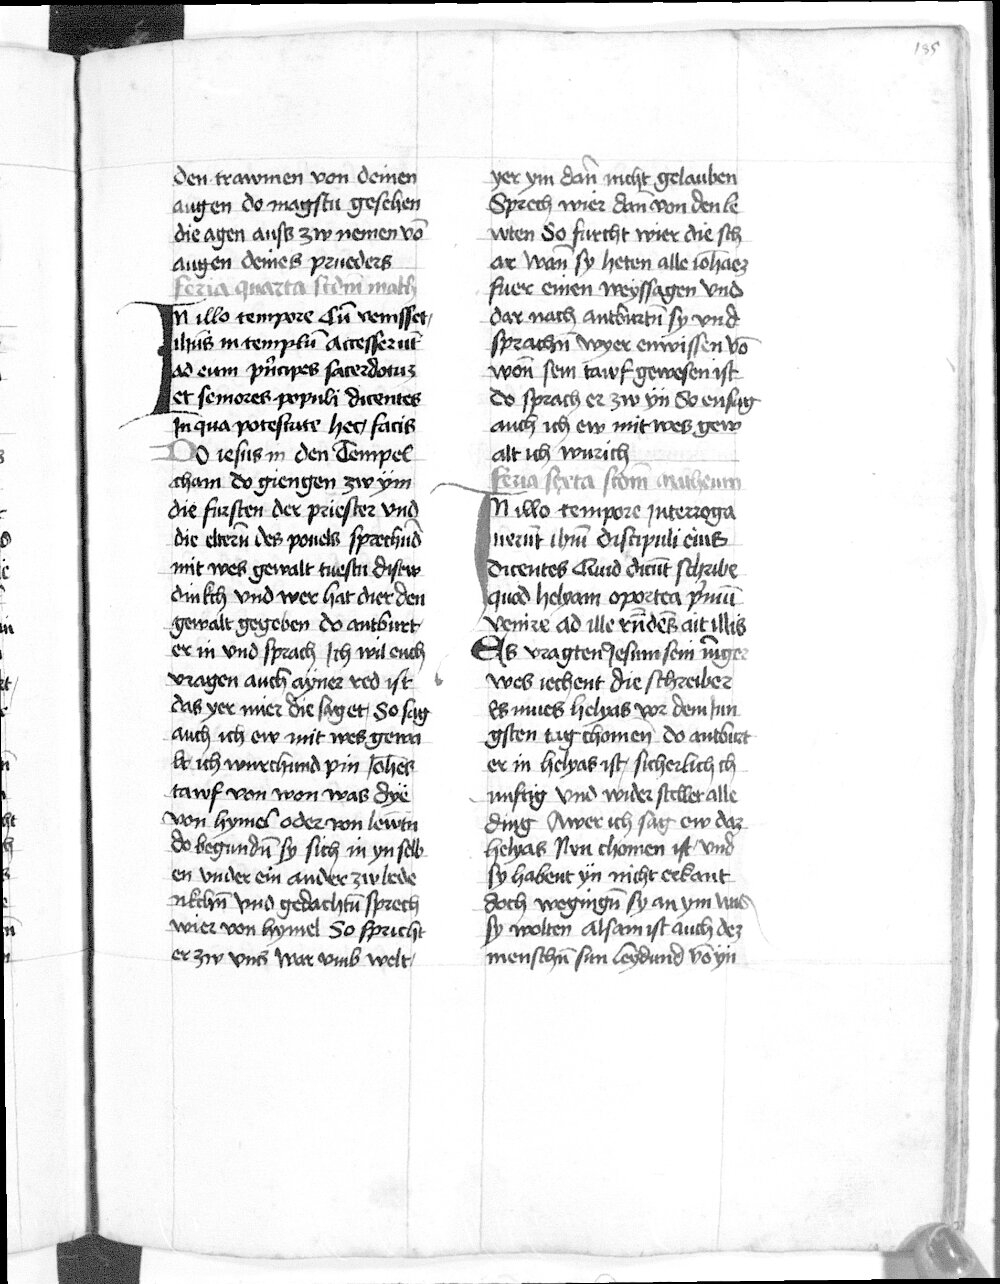 185
den trawmen von deinen
augen do magstu gesehen
die agen auss zw nemen vō
augen deines prueders
feria quarta scdm̄ math
In illo tempore Cū venisset
ihūs in templū Accesserūt
ad eum pn̄cipes sacerdotuꝫ
et seniores populi dicentes
In qua potestate hec facis
DO iesus in den Tempel
cham do giengen zw ÿm
die fursten der priester vnd
die elterñ des pouels sprechūd
mit wes gewalt tuestu disew
dinkch vnd wer hat dier den
gewalt gegeben do antburt
er in vnd sprach Ich wil euch
vragen auch aÿner red ist
das yer mier die saget So sag
auch ich ew mit wes gewa
lt ich wurchund pin Joh̄es
tawf von won was dÿe
von hymel oder von lewtn
do begundn̄ sy sich in yn selb
en vnder ein ander zw bede
nkchn̄ vnd gedachtn̄ sprech
wier von hymel So spricht
er zw vns war vmb welt
yer ym dan̄ nicht gelauben
Sprech wier dan̄ von den le
wten So furcht wier die sch
ar wan̄ sy heten alle ioh̄aēz
fuer einen weyssagen vnd
dar nach antburtn̄ sy vnd
sprachn̄ wyer enwissen vō
won̄ sein tawf gewesen ist
do sprach er zw ÿn So ensag
auch ich ew mit wes gew
alt ich wurich
feria sexta scdm̄ Matheum
In illo tempore Interroga
uerūt ihm̄ discipuli eius
dicentes Quid dicūt schribe
quod helyam oportea pͥmū
venire ad ille rn̄dēs ait illis
Es vragten Jesum sein iūger
wes iechent die schreiber
Es mues helyas vor dem iun
gsten tag chomen̄ do antburt
er in helyas ist sicherlich ch
unftig vnd wider stellet alle
ding Awer ich sag ew daz
helyas Nvn chomen ist vnd
sy habent ÿn nicht erkant
doch wegingn̄ sy an ym was
sy wolten Alsam ist auch dez
menschn̄ sun leydund vō ÿn